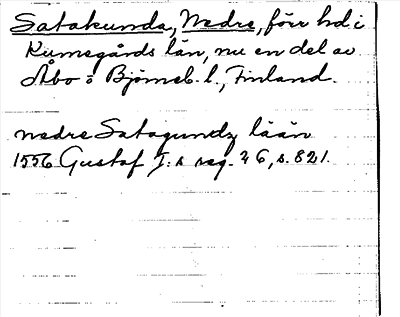 Satakunda, Nedre, förr hd. i
Kumogårds län, nu en del av
Åbo o Björneb. l., Finland.
nedre Satagundz lään
1556 Gustaf I:s reg. 26, s. 821.